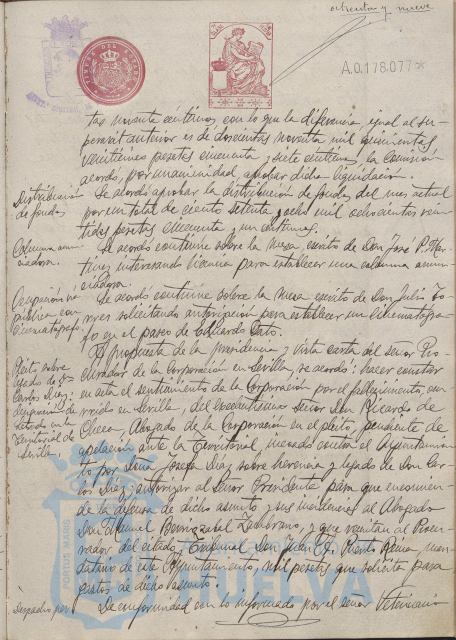 ochenta y nueve
TIMBRE DEL ESTADO
A.0.178.077*
tas noventa céntimos con lo que la diferencia igual al su-
peravit anterior es de doscientas noventa mil quinientas
veintiuna pesetas cincuenta y siete céntimos, la Comisión
acordó, por unanimidad, aprobar dicha liquidación.
Distribución
de fondos.
Se acordó aprobar la distribución de fondos del mes actual
por un total de ciento setenta y ocho mil ochocientas vein-
tidós pesetas cincuenta y un céntimos.
Columna anun-
ciadora.
Se acordó continúe sobre la mesa escrito de Don José P. Mar-
tínez interesando licencia para establecer una columna anun-
ciadora.
Ocupación vía
pública con
Cinematógrafo.
Se acordó continúe sobre la mesa escrito de Don Julio To-
rres solicitando autorización para establecer un Cinematógra-
fo en el paseo de Eduardo Dato.
Pleito sobre
legado de D.
Carlos Díaz;
designación de
letrado en la
Territorial de
Sevilla.
A propuesta de la presidencia y vista carta del señor Pro-
curador de la Corporación en Sevilla, se acordó: hacer constar
en acta el sentimiento de la Corporación por el fallecimiento, ocu-
rrido en Sevilla, del excelentísimo señor Don Ricardo de
Checa, Abogado de la Corporación en el pleito, pendiente de
apelación ante la Territorial, incoado contra el Ayuntamien-
to por Doña Josefa Díaz sobre herencia y legado de Don Car-
los Díaz; autorizar al señor Presidente para que encomien-
de la defensa de dicho asunto y sus incidencias al Abogado
Don Manuel Zambrano, y que remitan al Procu-
rador del citado Tribunal Don Juan Puerto Reina, man-
datario de este Ayuntamiento, mil pesetas que solicita para
gastos de dicho asunto.
De conformidad con lo informado por el señor Veterinario
PORTUS MARIS
HUELVA